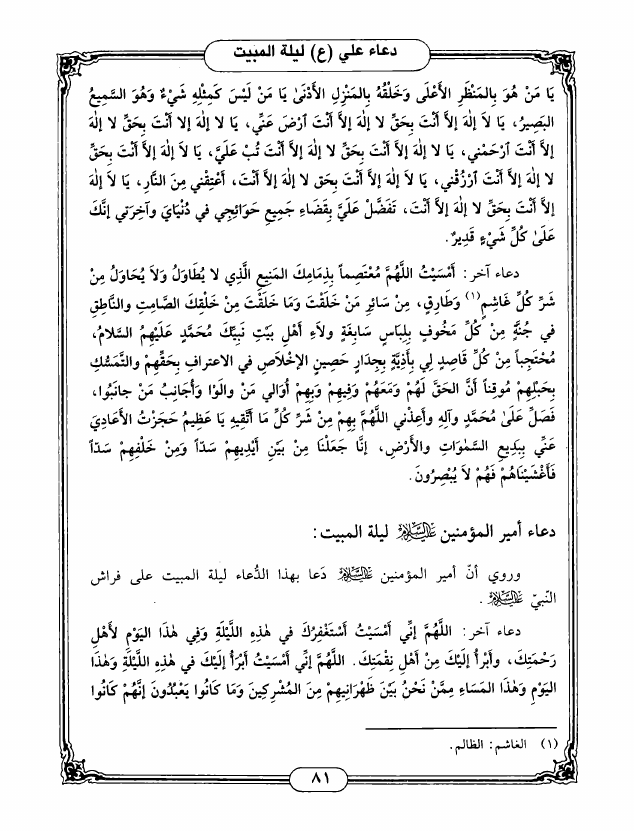 دعاء علي (ع) ليلة المبيت
يَا مَنْ هُوَ بِالمَنْظَرِ الأَعْلَى وَخَلْقُهُ بِالمَنْزِلِ الأَدْنَىٰ يَا مَنْ لَيْسَ كَمِثْلِهِ شَيْءٌ وَهُوَ السَّمِيعُ
البَصِيرُ، يَا لاَ إِلٰهَ إِلاَّ أَنْتَ بِحَقِّ لا إِلٰهَ إِلاَّ أَنْتَ ٱرْضَ عَنِّي، يَا لا إِلٰهَ إِلا أَنْتَ بِحَقِّ لا إِلٰهَ
إِلاَّ أَنْتَ ٱرْحَمْني، يَا لا إِلٰهَ إِلاَّ أَنْتَ بِحَقِّ لا إِلٰهَ إِلاَّ أَنْتَ تُبْ عَلَيَّ، يَا لا إِلٰهَ إِلاَّ أَنْتَ بِحَقِّ
لا إِلٰهَ إِلاَّ أَنْتَ ٱرْزُقْني، يَا لا إِلٰهَ إِلاَّ أَنْتَ بِحَق لا إِلٰهَ إِلاَّ أَنْتَ، أَعتِقْني مِنَ النَّارِ، يَا لاَ إِلٰهَ
إِلاَّ أَنْتَ بِحَقِّ لا إِلٰهَ إِلاَّ أَنْتَ، تَفَضَّلْ عَلَيَّ بِقَضَاءِ جَمِيعِ حَوَائِجِي في دُنْيَايَ وآخِرَتي إِنَّكَ
عَلَىٰ كُلِّ شَيْءٍ قَدِيرٌ.
دعاء آخر: أَمْسَيْتُ اللَّهُمَّ مُعْتَصِماً بِذِمَامِكَ المَنيعِ الَّذِي لا يُطَاوَلُ وَلاَ يُحَاوَلُ مِنْ
شَرِّ كُلِّ غَاشِمٍ(١) وَطَارِقٍ، مِنْ سَائِرِ مَنْ خَلَقْتَ وَمَا خَلَقْتَ مِنْ خَلْقِكَ الصَّامِتِ والنَّاطِقِ
في جُنَّةٍ مِنْ كُلِّ مَخُوفٍ بِلِبَاسٍ سَابِغَةٍ ولاَءِ أَهْلِ بَيْتِ نَبِيِّكَ مُحَمَّدٍ عَلَيْهِمُ السَّلامُ،
مُحْتَجِباً مِنْ كُلِّ قَاصِدٍ لي بِأَذِيَّةٍ بِجِدَارٍ حَصِينِ الإِخْلاَصِ في الاعترافِ بِحَقِّهِمْ والتَّمَسُّكِ
بِحَبْلِهِمْ مُوقِناً أَنَّ الحَقَّ لَهُمْ وَمَعَهُمْ وَفِيهِمْ وَبِهِمْ أُوَالي مَنْ وَالَوْا وَأُجَانِبُ مَنْ جانَبُوا،
فَصَلِّ عَلَىٰ مُحَمَّدٍ وآلِهِ وأَعِذْني اللَّهُمَّ بِهِمْ مِنْ شَرِّ كُلِّ مَا أَتَّقِيهِ يَا عَظِيمُ حَجَزْتُ الأَعَادِيَ
عَنِّي بِبَدِيعِ السَّمٰوَاتِ والأَرْضِ، إِنَّا جَعَلْنَا مِنْ بَيْنِ أَيْدِيهِمْ سَدّاً وَمِنْ خَلْفِهِمْ سَدّاً
فَأَغْشَيْنَاهُمْ فَهُمْ لاَ يُبْصِرُونَ.
دعاء أمير المؤمنين عليه السلام ليلة المبيت:
وروي أنّ أمير المؤمنين عليه السلام دَعا بهذا الدُّعاء ليلة المبيت على فراش
النّبيّ عليه السلام.
دعاء آخر: اللَّهُمَّ إِنِّي أَمْسَيْتُ أَسْتَغْفِرُكَ في هٰذِهِ اللَّيْلَةِ وَفِي هٰذَا اليَوْمِ لأَهْلِ
رَحْمَتِكَ، وأَبْرَأُ إِلَيْكَ مِنْ أَهْلِ نِقْمَتِكَ. اللَّهُمَّ إِنِّي أَمْسَيْتُ أَبْرَأُ إِلَيْكَ في هٰذِهِ اللَّيْلَةِ وَهٰذَا
اليَوْمِ وَهٰذَا المَسَاءِ مِمَّنْ نَحْنُ بَيْنَ ظَهْرَانِيهِمْ مِنَ المُشْرِكِينَ وَمَا كَانُوا يَعْبُدُونَ إِنَّهُمْ كَانُوا
(١) الغاشم: الظالم.
٨١